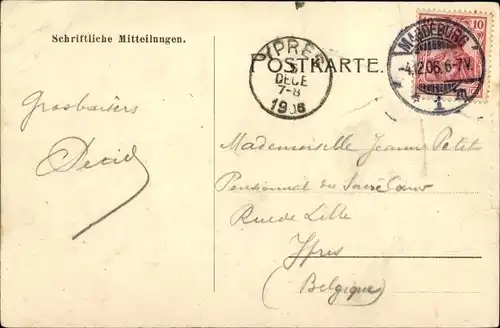 Schriftliche Mitteilungen.
POSTKARTE.
10
MAGDEBURG
-4.12.06.6-7V.
1 m
YPRES
5
DECE
7-8
1906
Mademoiselle Jeanne Petit
Pensionnat du Sacré Cœur
Rue de Lille
Ypres
(Belgique)